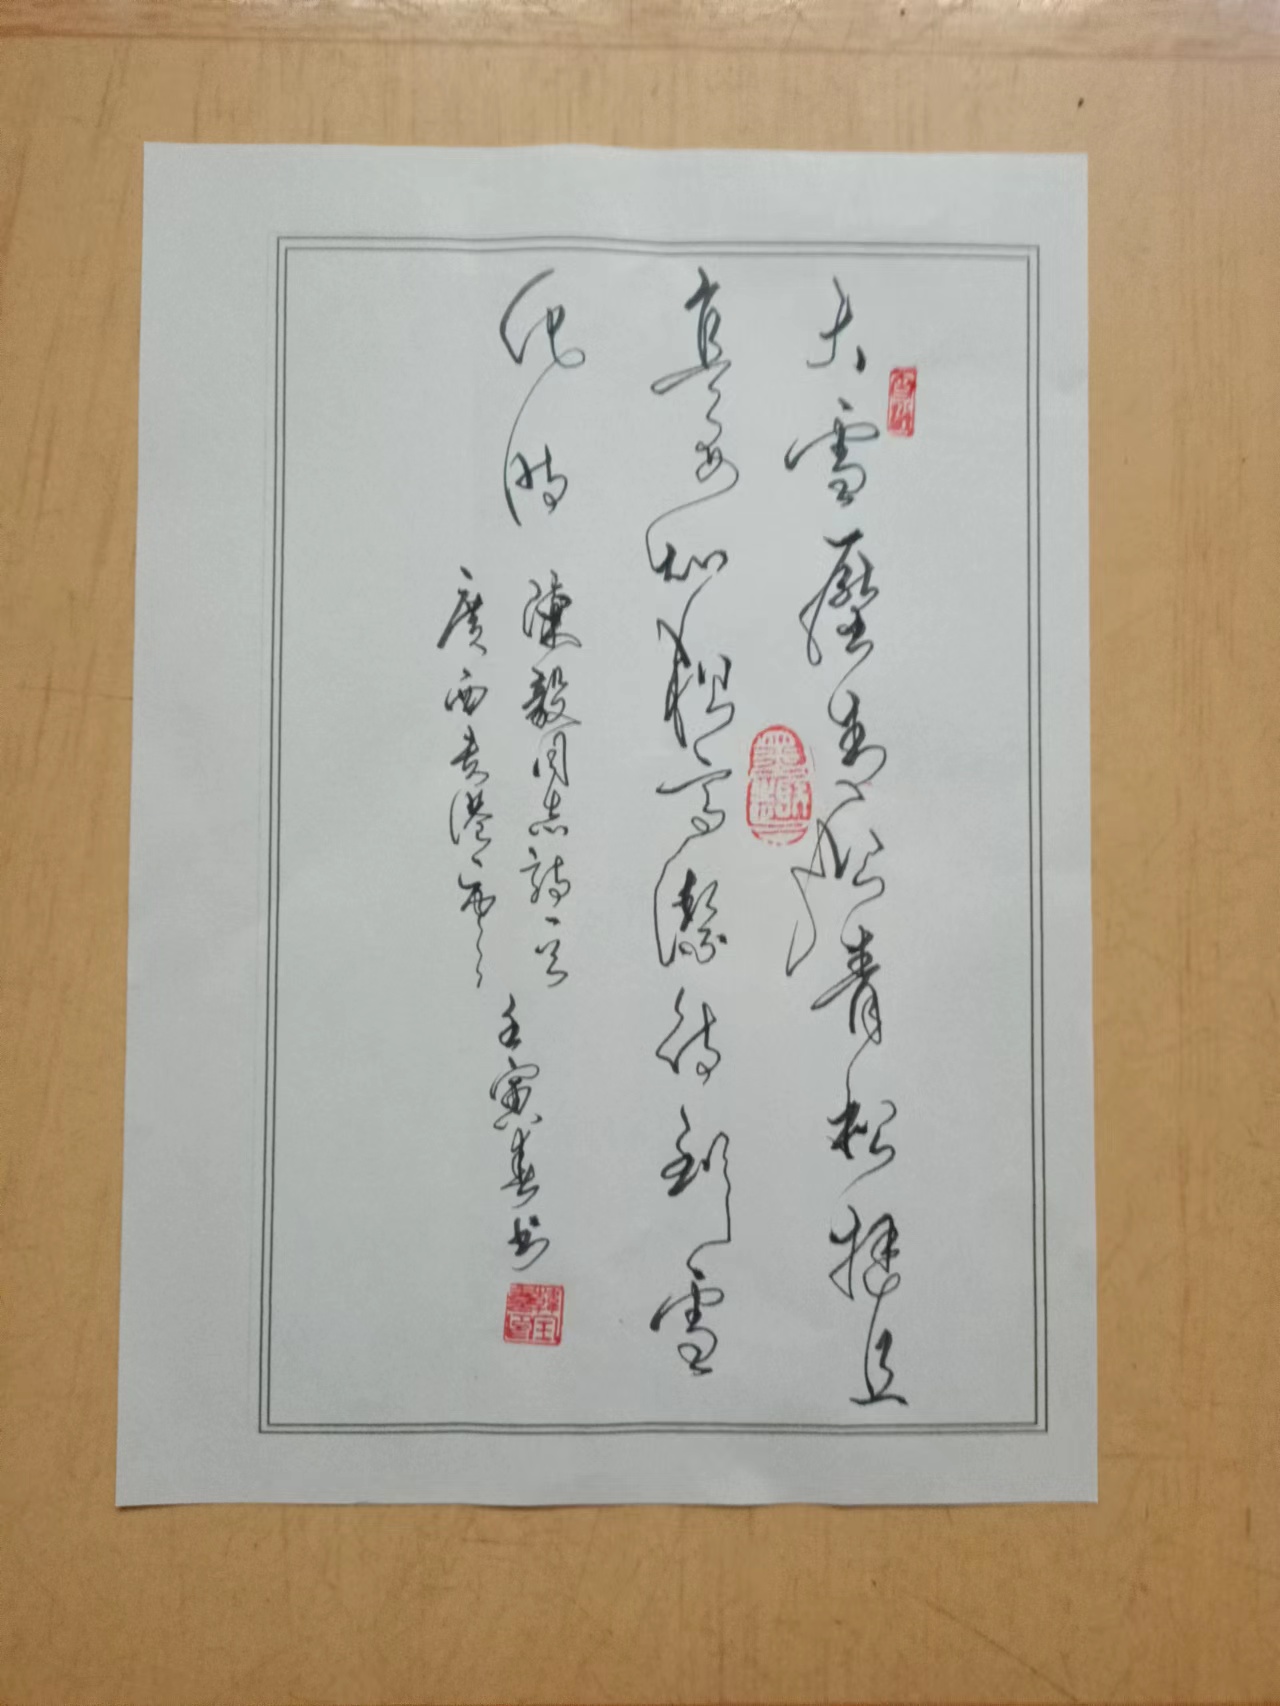 大雪壓青松青松挺且
直要知松高潔待到雪
化時
陳毅同志詩一首
廣西貴港
壬寅春书